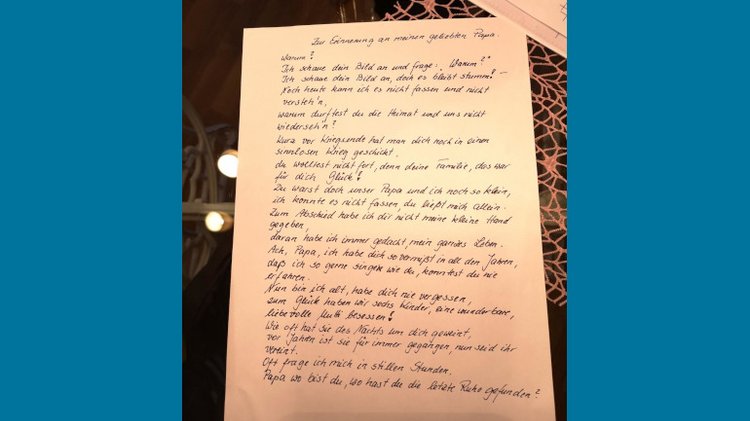 Zur Erinnerung an meinen geliebten Papa.
Warum?
Ich schaue dein Bild an und frage: "Warum?"
Ich schaue dein Bild an, doch es bleibt stumm! –
Noch heute kann ich es nicht fassen und nicht
versteh'n,
warum durftest du die Heimat und uns nicht
wiederseh'n?
Kurz vor Kriegsende hat man dich noch in einen
sinnlosen Krieg geschickt.
du wolltest nicht fort, denn deine Familie, das war
für dich Glück!
Du warst doch unser Papa und ich noch so klein,
ich konnte es nicht fassen, du ließt mich allein.
Zum Abschied habe ich dir nicht meine kleine Hand
gegeben,
daran habe ich immer gedacht, mein ganzes Leben.
Ach, Papa, ich habe dich so vermißt in all den Jahren,
daß ich so gerne singe wie du, konntest du nie
erfahren.
Nun bin ich alt, habe dich nie vergessen,
zum Glück haben wir sechs Kinder, eine wunderbare,
liebevolle Mutti besessen!
Wie oft hat sie des Nachts um dich geweint,
vor Jahren ist sie für immer gegangen, nun seid ihr
vereint.
Oft frage ich mich in stillen Stunden.
Papa wo bist du, wo hast du die letzte Ruhe gefunden?